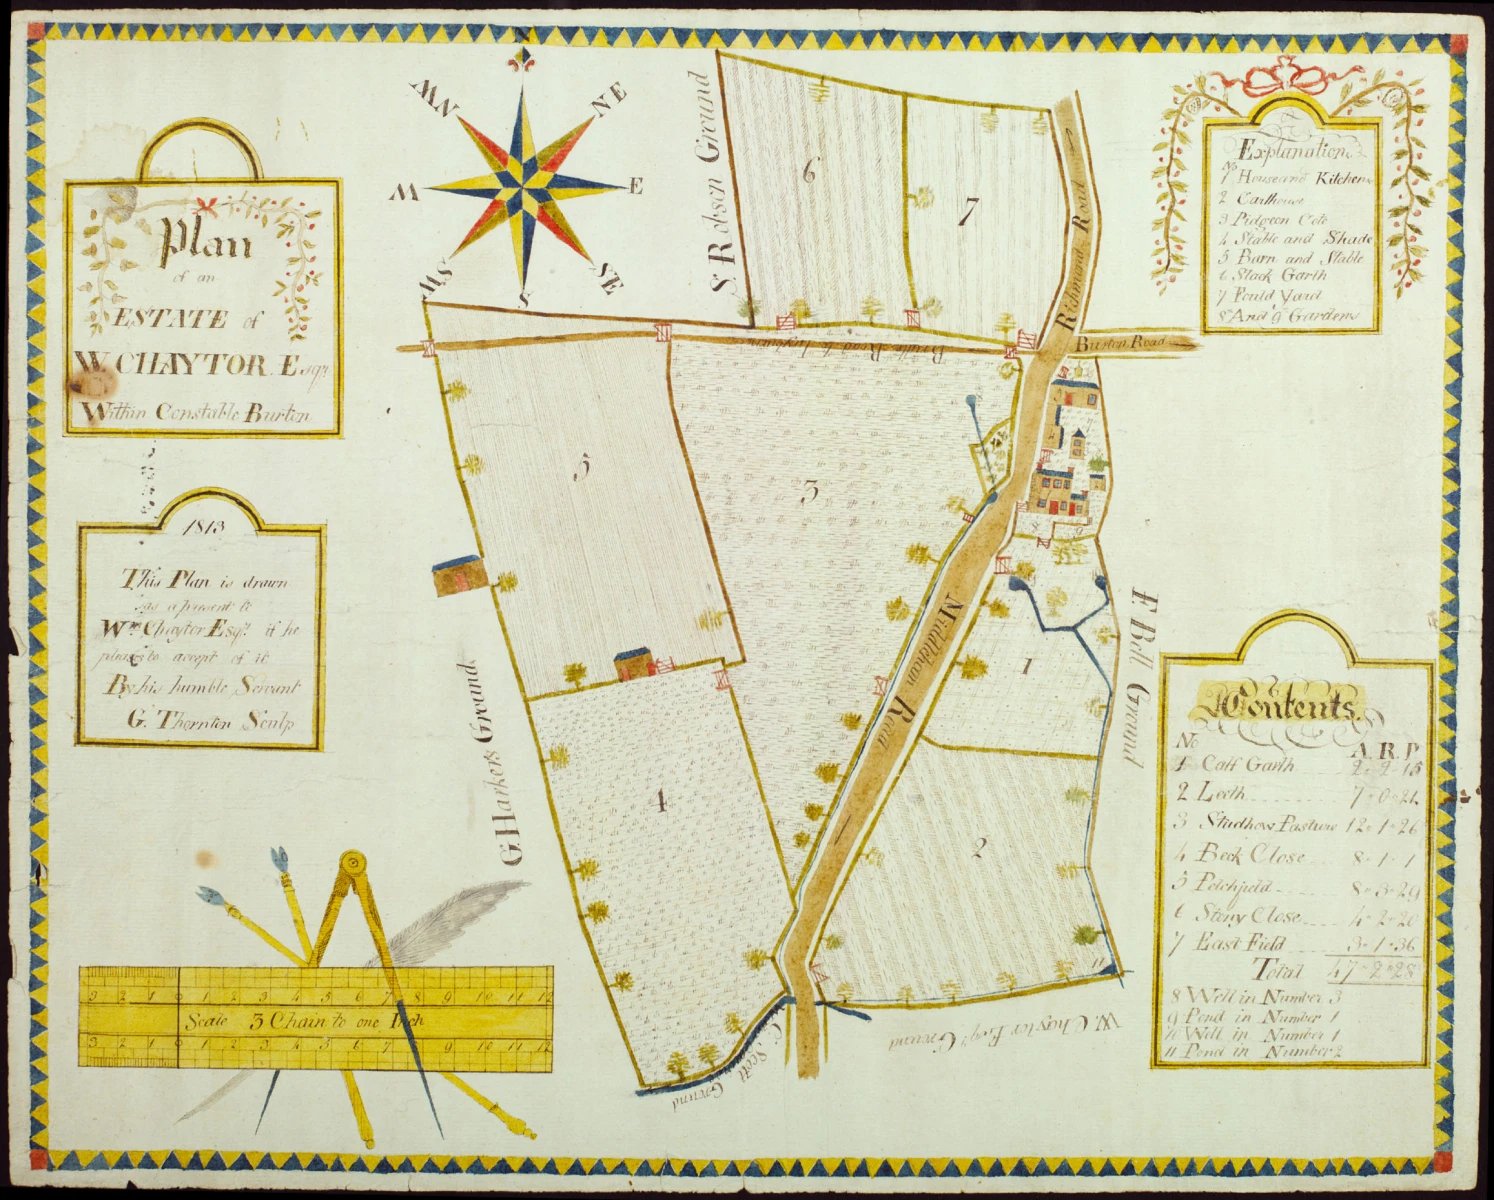 Plan
of an
ESTATE of
W. CHAYTOR Esqr.
Within Constable Burton
1813
This Plan is drawn
as a present to
Wm. Chaytor Esqr. if he
pleas to accept of it
By his humble Servant
G. Thornton Sculp
N
NE
E
SE
S
WS
W
WN
S. Robson Ground
6
7
Richmond Road
Burton Road
Bridle Road to
5
3
4
1
2
Middleham Road
F. Bell Ground
G. Harkers Ground
C. Scott Ground
W. Chaytor Esqr. Ground
11
8
9
Explanation
No
1 House and Kitchens
2 Carthouse
3 Pidgeon Cote
4 Stable and Shade
5 Barn and Stable
6 Stack Garth
7 Fould Yard
8 And 9 Gardens
Contents
No A. R. P
1 Calf Garth 2 - 2 - 18
2 Leeth 7 - 0 - 21
3 Studhow Pasture 12 - 1 - 26
4 Beck Close 8 - 1 - 1
5 Petchfield 8 - 3 - 29
6 Stony Close 4 - 2 - 20
7 East Field 3 - 1 - 36
Total 47 - 2 - 28
8 Well in Number 3
9 Pond in Number 1
10 Well in Number 1
11 Pond in Number 2
3 2 1 0 1 2 3 4 5 6 7 8 9 10 11 12
Scale 3 Chain to one Inch
3 2 1 0 1 2 3 4 5 6 7 8 9 10 11 12